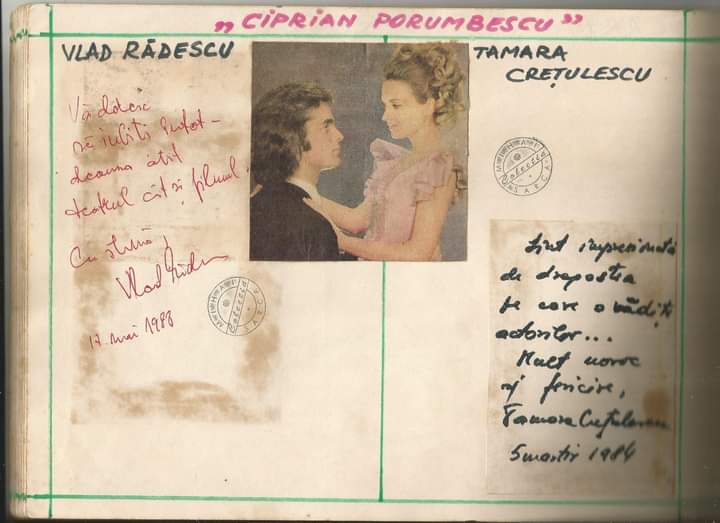 „CIPRIAN PORUMBESCU”
VLAD RĂDESCU
Vă doresc
să iubiți întot-
deauna atît
teatrul cît și filmul.
Cu stimă,
Vlad Rădescu
17 mai 1988
TAMARA
CREȚULESCU
Sînt impresionată
de dragostea
pe care o vădiți
actorilor...
Mult noroc
și fericire,
Tamara Crețulescu
5 martie 1984